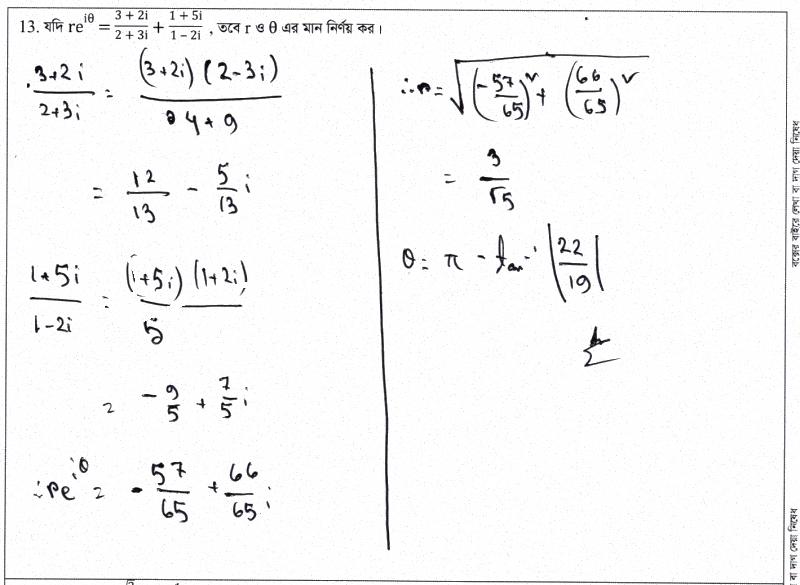 13. যদি re^{iθ} = \frac{3 + 2i}{2 + 3i} + \frac{1 + 5i}{1 - 2i} , তবে r ও θ এর মান নির্ণয় কর।
\frac{3+2i}{2+3i} = \frac{(3+2i)(2-3i)}{4+9}
= \frac{12}{13} - \frac{5}{13}i
\frac{1+5i}{1-2i} = \frac{(1+5i)(1+2i)}{5}
= -\frac{9}{5} + \frac{7}{5}i
∴ re^{iθ} = -\frac{57}{65} + \frac{66}{65}i
∴ r = \sqrt{(-\frac{57}{65})^২ + (\frac{66}{65})^২}
= \frac{3}{\sqrt{5}}
θ = π - tan^{-1} |\frac{22}{19}|
বক্সের বাইরে লেখা বা দাগ দেয়া নিষেধ
বা দাগ দেয়া নিষেধ